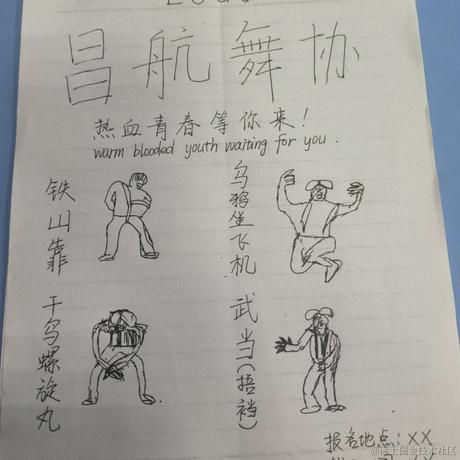 昌航舞协
热血青春等你来!
warm blooded youth waiting for you.
铁山靠
乌鸦坐飞机
干鸟螺旋丸
武当(捂裆)
报名地点:XX
@稀土掘金技术社区